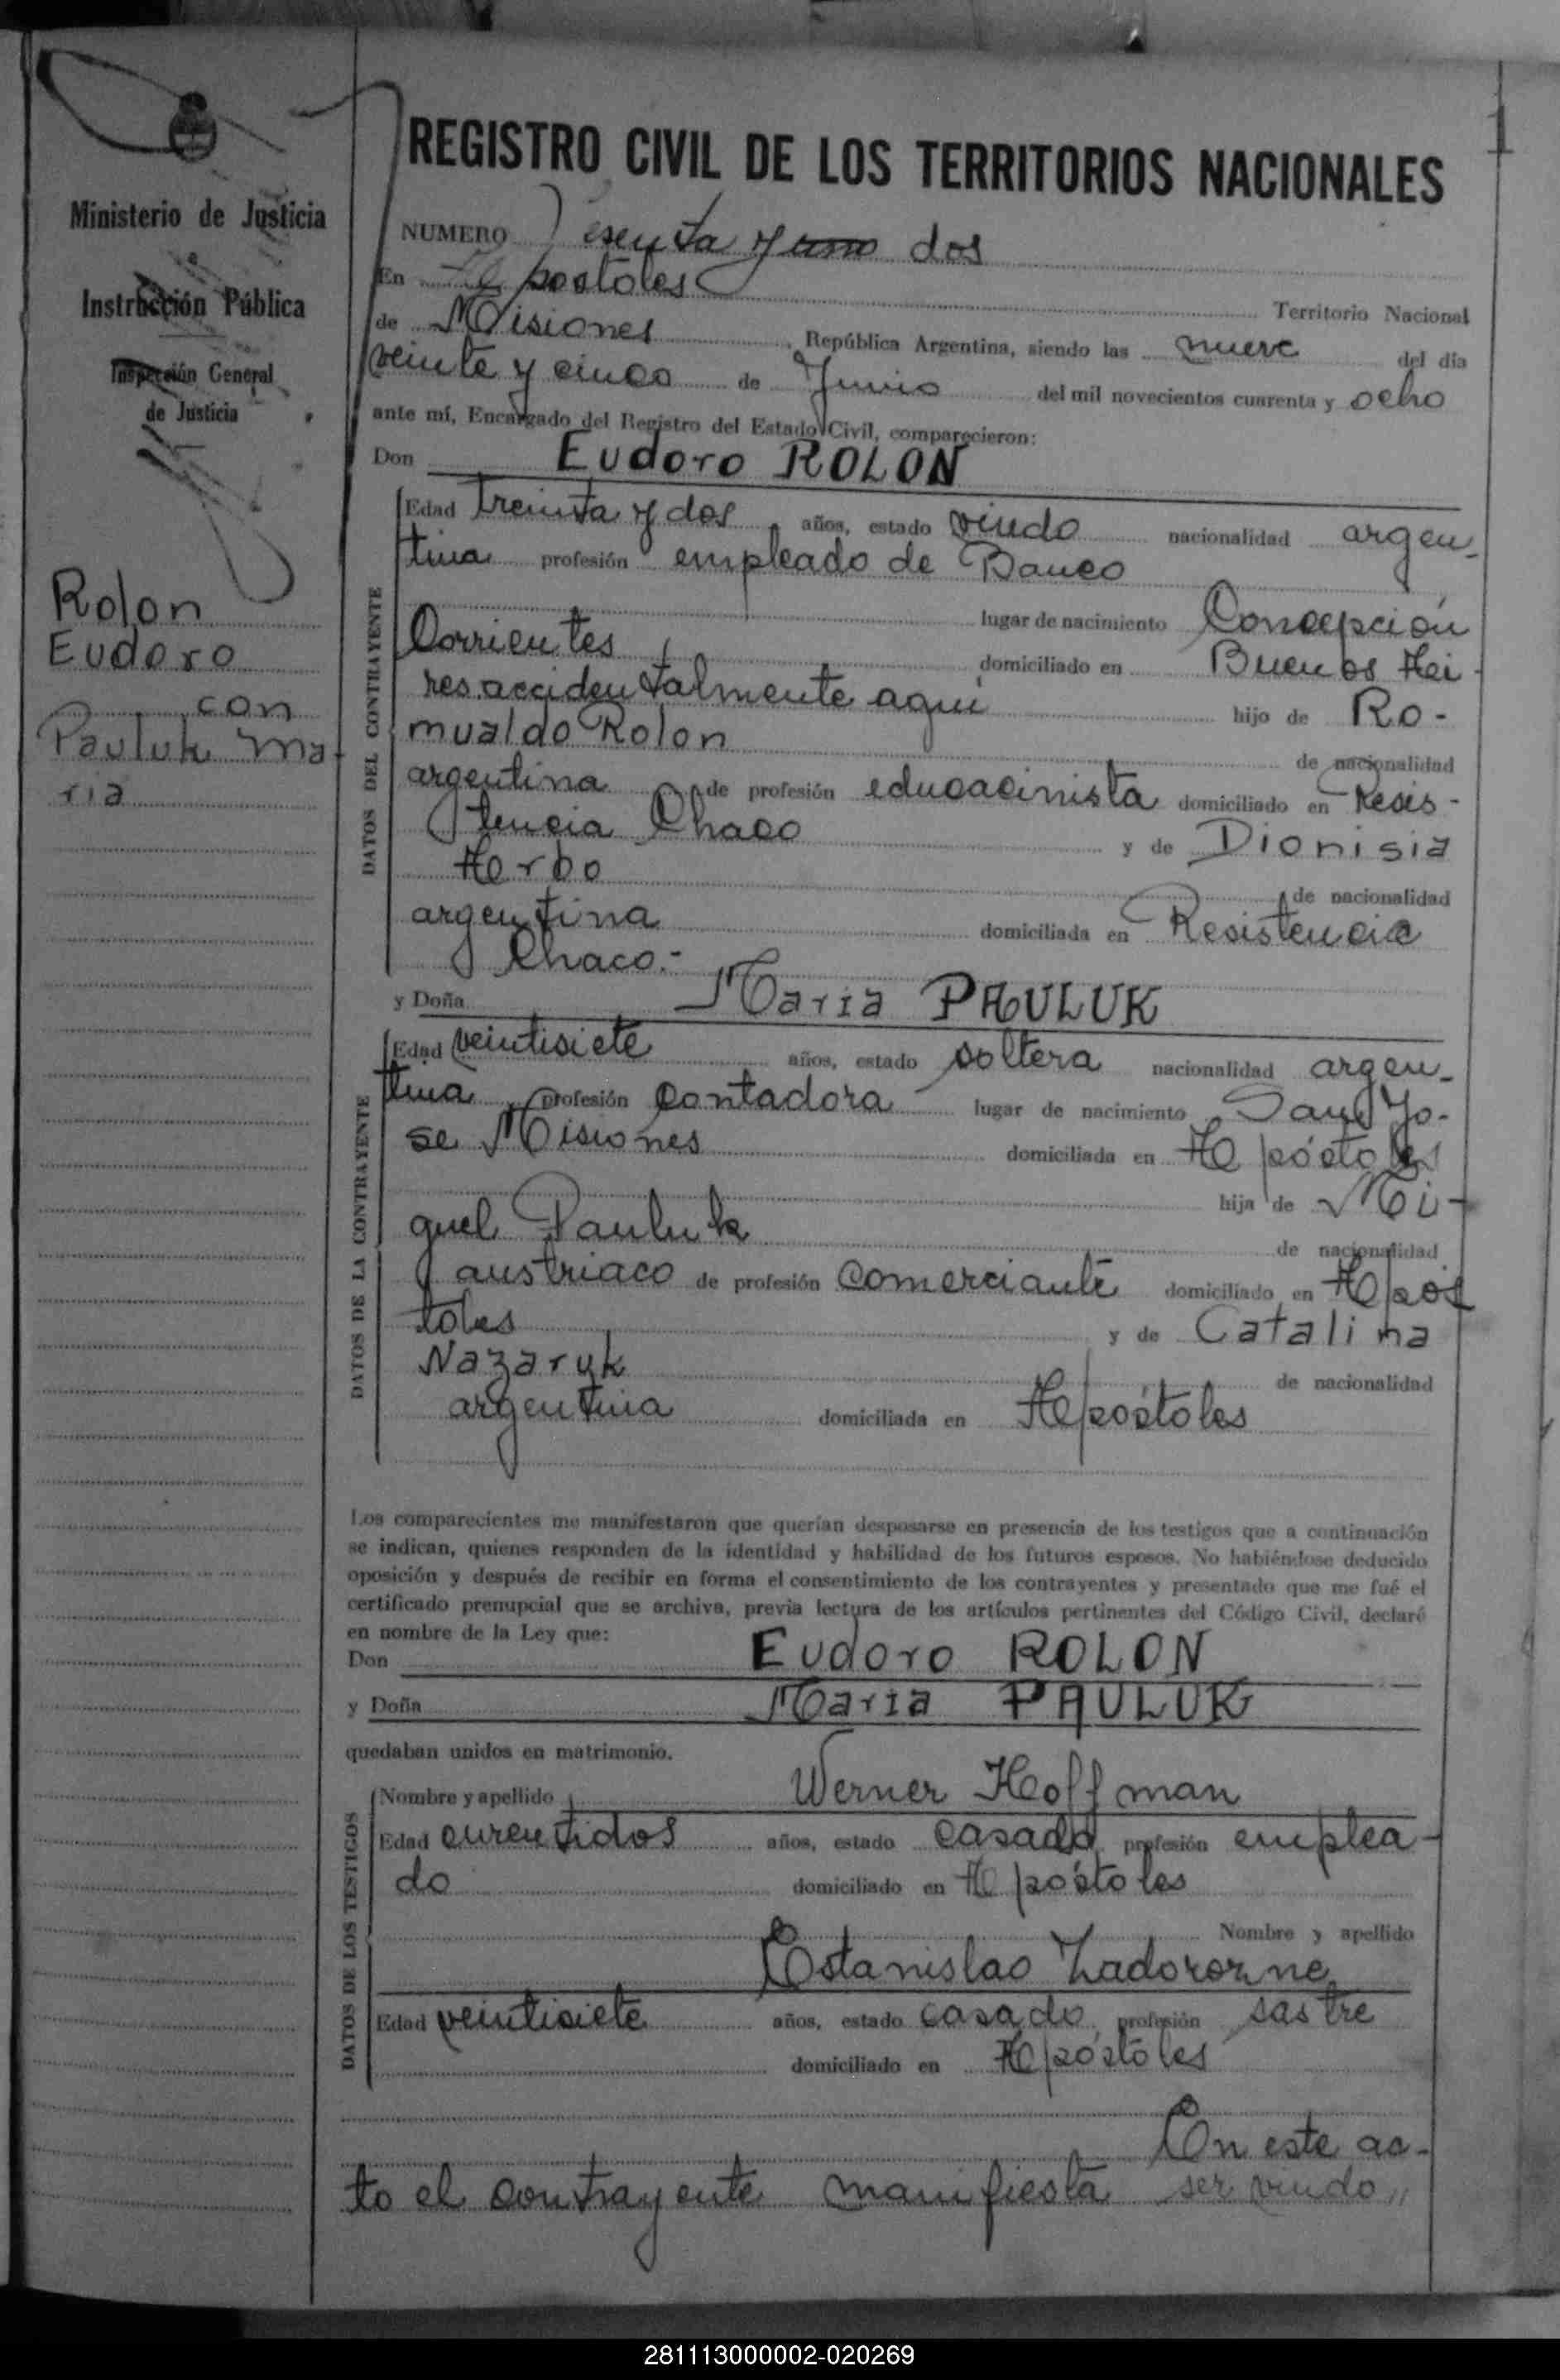 REGISTRO CIVIL DE LOS TERRITORIOS NACIONALES
1
Ministerio de Justicia
e
Instrucción Pública
Inspección General
de Justicia
Rolon
Eudoro
con
Pauluk Ma-
ria
NUMERO Sesenta y uno dos
En Apostoles
Territorio Nacional
de Misiones, República Argentina, siendo las nueve del día
veinte y cinco de Junio del mil novecientos cuarenta y ocho
ante mí, Encargado del Registro del Estado Civil, comparecieron:
Don Eudoro ROLON
DATOS DEL CONTRAYENTE
Edad treinta y dos años, estado viudo nacionalidad argen-
tina profesión empleado de Banco
lugar de nacimiento Concepción
Corrientes domiciliado en Buenos Ai-
res accidentalmente aquí hijo de Ro-
mualdo Rolon
de nacionalidad
argentina de profesión educacinista domiciliado en Resis-
tencia Chaco y de Dionisia
de nacionalidad
argentina domiciliada en Resistencia
Chaco.-
y Doña Maria PAULUK
DATOS DE LA CONTRAYENTE
Edad veintisiete años, estado soltera nacionalidad argen-
tina profesión contadora lugar de nacimiento San Jo-
se Misiones domiciliada en Apóstoles
hija de Mi-
guel Pauluk
de nacionalidad
austriaco de profesión comerciante domiciliado en Após
toles y de Catalina
Nazaruk
de nacionalidad
argentina domiciliada en Apóstoles
Los comparecientes me manifestaron que querían desposarse en presencia de los testigos que a continuación
se indican, quienes responden de la identidad y habilidad de los futuros esposos. No habiéndose deducido
oposición y después de recibir en forma el consentimiento de los contrayentes y presentado que me fué el
certificado prenupcial que se archiva, previa lectura de los artículos pertinentes del Código Civil, declaré
en nombre de la Ley que:
Don Eudoro ROLON
y Doña Maria PAULUK
quedaban unidos en matrimonio.
DATOS DE LOS TESTIGOS
Nombre y apellido Werner Hoffman
Edad curentidos años, estado casado profesión emplea-
do domiciliado en Apóstoles
Nombre y apellido
Estanislao Zadorozne
Edad veintisiete años, estado casado, profesión sastre
domiciliado en Apóstoles
En este ac-
to el contrayente manifiesta ser viudo,,
281113000002-020269